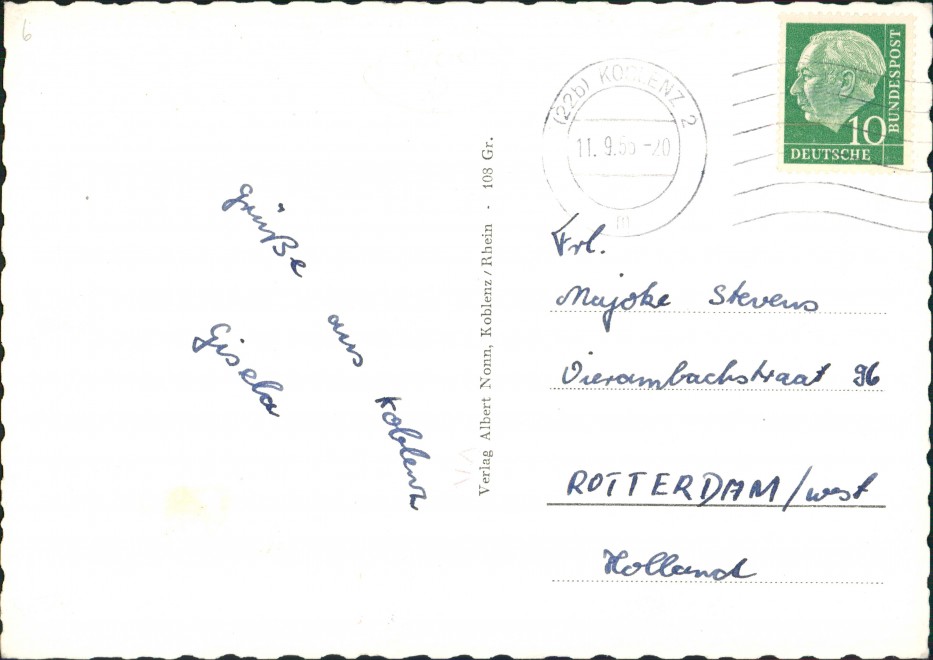 6
Grüße
aus
Koblenz
Gisela
Verlag Albert Nonn, Koblenz/Rhein - 108 Gr.
(22b) KOBLENZ 2
11. 9.56 -20
m
10
BUNDESPOST
DEUTSCHE
Frl.
Majoke Stevens
Vierambachstraat 96
ROTTERDAM/west
Holland